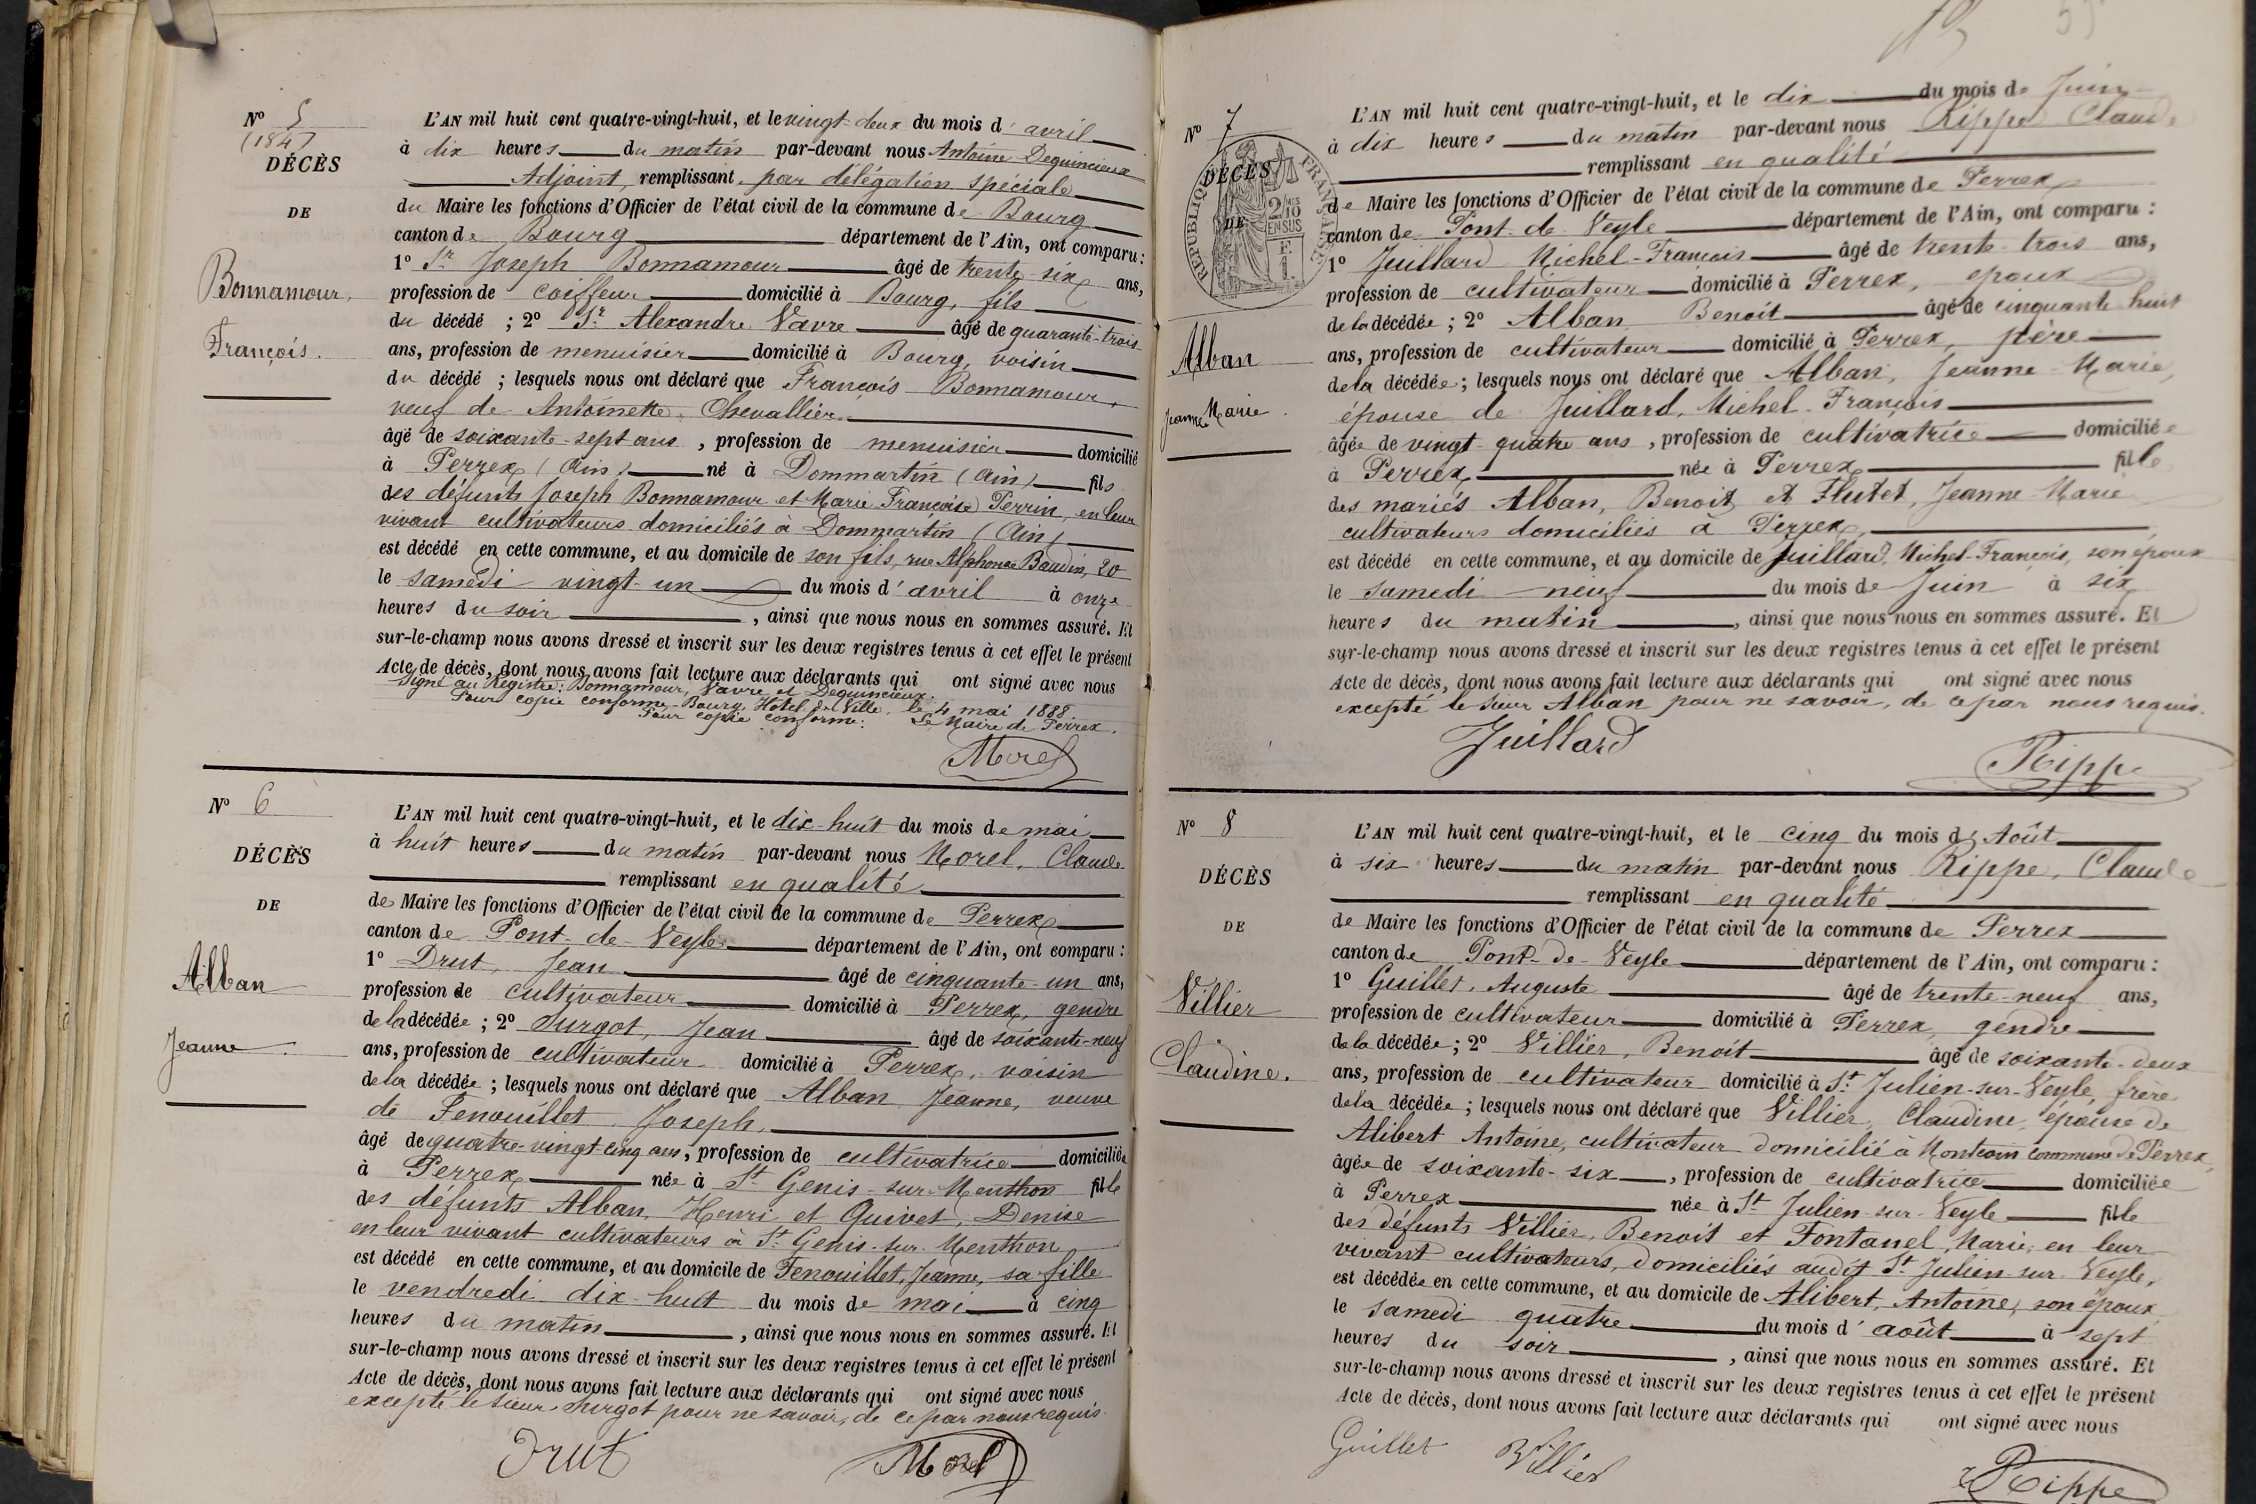 Nº 5
(184)
DÉCÈS
DE
Bonnamour,
François.
L'AN mil huit cent quatre-vingt-huit, et le vingt-deux du mois d'avril
à dix heures du matin par-devant nous Antoine Dequincieux
Adjoint, remplissant par délégation spéciale
du Maire les fonctions d'Officier de l'état civil de la commune de Bourg
canton de Bourg département de l'Ain, ont comparu :
1º Sr Joseph Bonnamour âgé de trente-six ans,
profession de coiffeur domicilié à Bourg, fils
du décédé ; 2º Sr Alexandre Vavre âgé de quarante-trois
ans, profession de menuisier domicilié à Bourg, voisin
du décédé ; lesquels nous ont déclaré que François Bonnamour,
veuf de Antoinette Chevallier
âgé de soixante-sept ans, profession de menuisier domicilié
à Perrex (Ain) né à Dommartin (Ain) fils
des défunts Joseph Bonnamour et Marie Françoise Perrin, en leur
vivant cultivateurs domiciliés à Dommartin (Ain)
est décédé en cette commune, et au domicile de son fils, rue Alphonse Baudin, 20
le samedi vingt-un du mois d'avril à onze
heures du soir, ainsi que nous nous en sommes assuré. Et
sur-le-champ nous avons dressé et inscrit sur les deux registres tenus à cet effet le présent
Acte de décès, dont nous avons fait lecture aux déclarants qui ont signé avec nous
Signé au Registre : Bonnamour, Vavre et Dequincieux.
Pour copie conforme. Bourg, Hôtel de Ville, le 4 mai 1888
Pour copie conforme : Le Maire de Perrex.
Morel
Nº 6
DÉCÈS
DE
Alban
Jeanne.
L'AN mil huit cent quatre-vingt-huit, et le dix-huit du mois de mai
à huit heures du matin par-devant nous Morel, Claude
remplissant en qualité
de Maire les fonctions d'Officier de l'état civil de la commune de Perrex
canton de Pont-de-Veyle département de l'Ain, ont comparu :
1º Drut, Jean âgé de cinquante-un ans,
profession de cultivateur domicilié à Perrex, gendre
de la décédée ; 2º Surgot, Jean âgé de soixante-neuf
ans, profession de cultivateur domicilié à Perrex, voisin
de la décédée ; lesquels nous ont déclaré que Alban Jeanne, veuve
de Fenouillet Joseph,
âgé de quatre-vingt-cinq ans, profession de cultivatrice domiciliée
à Perrex née à St Genis-sur-Menthon fille
des défunts Alban, Henri et Quivet, Denise
en leur vivant cultivateurs à St Genis-sur-Menthon
est décédé en cette commune, et au domicile de Fenouillet, Jeanne, sa fille
le vendredi dix-huit du mois de mai à cinq
heures du matin, ainsi que nous nous en sommes assuré. Et
sur-le-champ nous avons dressé et inscrit sur les deux registres tenus à cet effet le présent
Acte de décès, dont nous avons fait lecture aux déclarants qui ont signé avec nous
excepté le sieur Surgot pour ne savoir, de ce par nous requis.
Drut Morel
Nº 7
DÉCÈS
DE
RÉPUBLIQUE FRANÇAISE
2/10 EN SUS
F.
1.
Alban
Jeanne Marie.
L'AN mil huit cent quatre-vingt-huit, et le dix du mois de Juin
à dix heures du matin par-devant nous Rippe Claude
remplissant en qualité
de Maire les fonctions d'Officier de l'état civil de la commune de Perrex
canton de Pont-de-Veyle département de l'Ain, ont comparu :
1º Juillard Michel-François âgé de trente-trois ans,
profession de cultivateur domicilié à Perrex, époux
de la décédée ; 2º Alban Benoit âgé de cinquante huit
ans, profession de cultivateur domicilié à Perrex, père
de la décédée ; lesquels nous ont déclaré que Alban, Jeanne-Marie,
épouse de Juillard, Michel-François
âgée de vingt-quatre ans, profession de cultivatrice domiciliée
à Perrex née à Perrex fille
des mariés Alban, Benoit et Flutet, Jeanne-Marie
cultivateurs domiciliés à Perrex,
est décédé en cette commune, et au domicile de Juillard, Michel-François, son époux
le samedi neuf du mois de Juin à six
heures du matin, ainsi que nous nous en sommes assuré. Et
sur-le-champ nous avons dressé et inscrit sur les deux registres tenus à cet effet le présent
Acte de décès, dont nous avons fait lecture aux déclarants qui ont signé avec nous
excepté le sieur Alban pour ne savoir, de ce par nous requis.
Juillard
Rippe
Nº 8
DÉCÈS
DE
Villier
Claudine.
L'AN mil huit cent quatre-vingt-huit, et le cinq du mois d'Août
à six heures du matin par-devant nous Rippe, Claude
remplissant en qualité
de Maire les fonctions d'Officier de l'état civil de la commune de Perrex
canton de Pont-de-Veyle département de l'Ain, ont comparu :
1º Guillet, Auguste âgé de trente-neuf ans,
profession de cultivateur domicilié à Perrex, gendre
de la décédée ; 2º Villier, Benoit âgé de soixante-deux
ans, profession de cultivateur domicilié à St Julien-sur-Veyle, frère
de la décédée ; lesquels nous ont déclaré que Villier, Claudine, épouse de
Alibert Antoine, cultivateur domicilié à Montcoin commune de Perrex,
âgée de soixante-six, profession de cultivatrice domiciliée
à Perrex née à St Julien-sur-Veyle fille
des défunts Villier, Benoit et Fontanel, Marie, en leur
vivant cultivateurs, domiciliés audit St Julien-sur-Veyle,
est décédée en cette commune, et au domicile de Alibert, Antoine, son époux
le samedi quatre du mois d'août à sept
heures du soir, ainsi que nous nous en sommes assuré. Et
sur-le-champ nous avons dressé et inscrit sur les deux registres tenus à cet effet le présent
Acte de décès, dont nous avons fait lecture aux déclarants qui ont signé avec nous
Guillet B Villier
Rippe